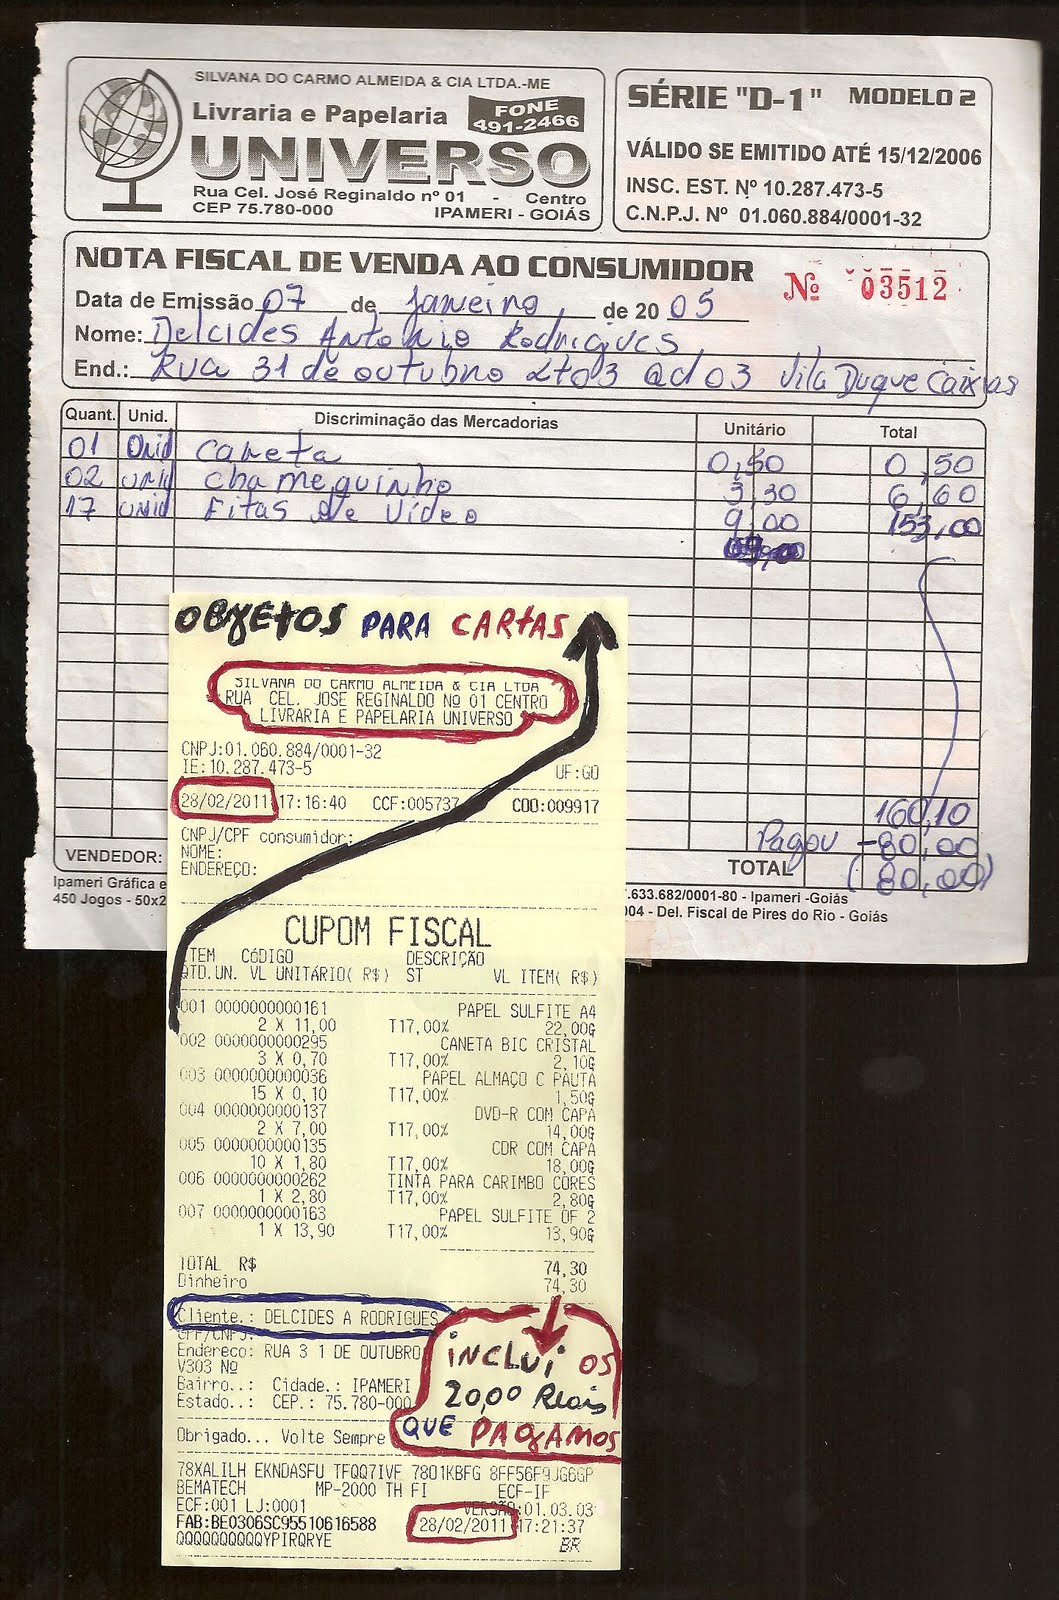 SILVANA DO CARMO ALMEIDA & CIA LTDA.-ME
Livraria e Papelaria
FONE
491-2466
UNIVERSO
Rua Cel. José Reginaldo nº 01 - Centro
CEP 75.780-000 IPAMERI - GOIÁS
SÉRIE "D-1" MODELO 2
VÁLIDO SE EMITIDO ATÉ 15/12/2006
INSC. EST. Nº 10.287.473-5
C.N.P.J. Nº 01.060.884/0001-32
NOTA FISCAL DE VENDA AO CONSUMIDOR
Nº 03512
Data de Emissão 07 de Janeiro, de 20 05
Nome: Delcides Antonio Rodrigues,
End.: Rua 31 de outubro Lt 03 Qd 03 Vila Duque Caixias
Quant. Unid. Discriminação das Mercadorias Unitário Total
01 Unid Caneta 0,50 0,50
02 unid Chamequinho 3,30 6,60
17 unid Fitas de Vídeo 9,00 153,00
160,10
Pagou -80,00
VENDEDOR: TOTAL (80,00)
Ipameri Gráfica e .633.682/0001-80 - Ipameri -Goiás
450 Jogos - 50x2 004 - Del. Fiscal de Pires do Rio - Goiás
OBJETOS PARA CARTAS
SILVANA DO CARMO ALMEIDA & CIA LTDA
RUA CEL. JOSE REGINALDO Nº 01 CENTRO
LIVRARIA E PAPELARIA UNIVERSO
CNPJ:01.060.884/0001-32
IE:10.287.473-5 UF:GO
28/02/2011 17:16:40 CCF:005737 COO:009917
CNPJ/CPF consumidor:
NOME:
ENDEREÇO:
CUPOM FISCAL
ITEM CÓDIGO DESCRIÇÃO
QTD.UN. VL UNITÁRIO( R$) ST VL ITEM( R$)
001 0000000000161 PAPEL SULFITE A4
2 X 11,00 T17,00% 22,00G
002 0000000000295 CANETA BIC CRISTAL
3 X 0,70 T17,00% 2,10G
003 0000000000036 PAPEL ALMAÇO C PAUTA
15 X 0,10 T17,00% 1,50G
004 0000000000137 DVD-R COM CAPA
2 X 7,00 T17,00% 14,00G
005 0000000000135 CDR COM CAPA
10 X 1,80 T17,00% 18,00G
006 0000000000262 TINTA PARA CARIMBO CORES
1 X 2,80 T17,00% 2,80G
007 0000000000163 PAPEL SULFITE OF 2
1 X 13,90 T17,00% 13,90G
TOTAL R$ 74,30
Dinheiro 74,30
Cliente.: DELCIDES A RODRIGUES
CPF/CNPJ:
Endereco: RUA 3 1 DE OUTUBRO
V303 Nº
Bairro..: Cidade.: IPAMERI
Estado..: CEP.: 75.780-000
Obrigado... Volte Sempre
INCLUI OS
20,00 Reais
QUE PAGAMOS
78XALILH EKNDASFU TFQQ7IVF 7801KBFG 8FF56F9JG6GP
BEMATECH MP-2000 TH FI ECF-IF
ECF:001 LJ:0001 VERSÃO:01.03.03
FAB:BE0306SC95510616588 28/02/2011 17:21:37
QQQQQQQQQQYPIRQRYE BR